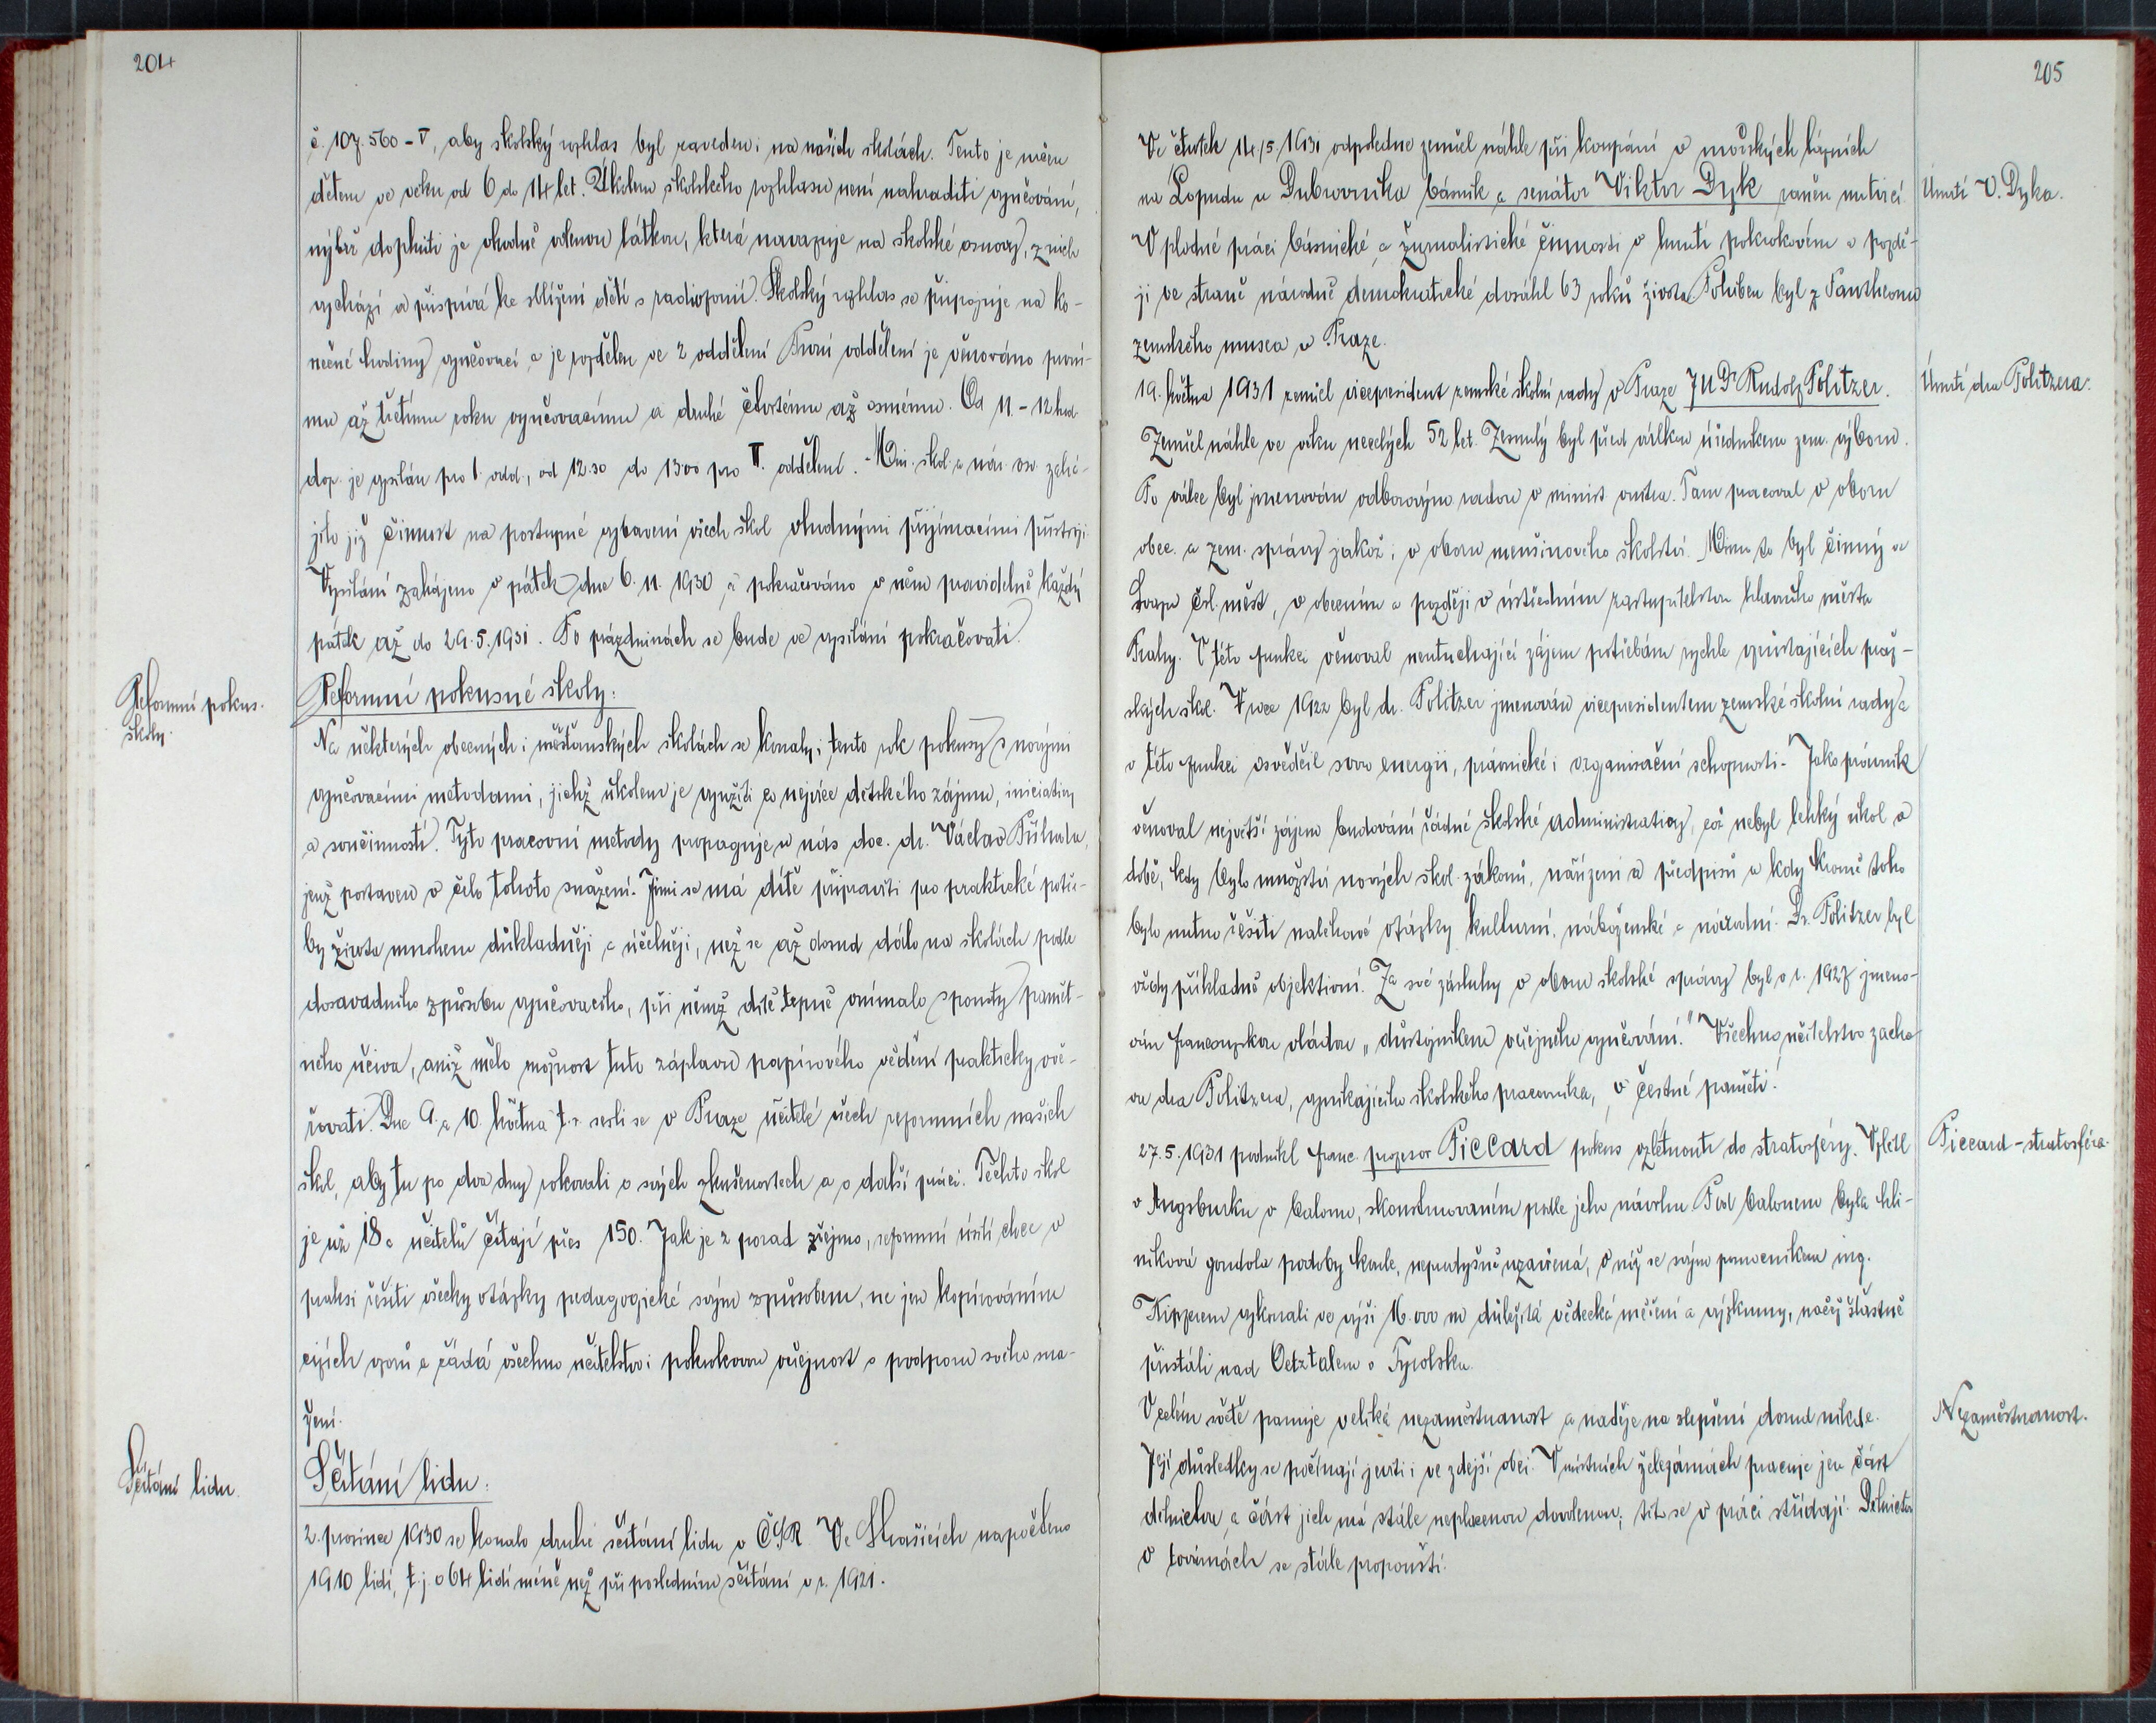 204
č. 107.560-V, aby školský rozhlas byl zaveden i na našich školách. Tento je určen
dětem ve věku od 6 do 14 let. Úkolem školského rozhlasu není nahraditi vyučování,
nýbrž doplniti je vhodně volenou látkou, která navazuje na školské osnovy, z nich
vychází a přispívá ke sblížení dětí s radiofonií. Školský rozhlas se připojuje na ko-
nečné hodiny vyučovací a je rozdělen ve 2 oddělení. První oddělení je věnováno prvé-
mu až třetímu roku vyučovacímu a druhé čtvrtému až osmému. Od 11.-12 hod.
dop. je vysílán pro I. odd., od 12.30 do 13.00 pro II. oddělení. Min. škol. a nár. osv. zahá-
jilo již činnost na postupné vybavení všech škol vhodnými přijímacími přístroji.
Vysílání zahájeno v pátek dne 6. 11. 1930 a pokračováno v něm pravidelně každý
pátek až do 29.5.1931. Po prázdninách se bude ve vysílání pokračovati.
Reformní pokus.
školy.
Reformní pokusné školy:
Na některých obecných i měšťanských školách se konaly i tento rok pokusy s novými
vyučovacími metodami, jichž úkolem je využíti co nejvíce dětského zájmu, iniciativy
a součinnosti. Tyto pracovní metody propaguje u nás doc. dr. Václav Příhoda,
jenž postaven v čelo tohoto snažení. Jimi se má dítě připraviti pro praktické potře-
by života mnohem důkladněji a účelněji, než se až dosud dálo na školách podle
dosavadního způsobu vyučovacího, při němž dítě trpně vnímalo spousty pamět-
ného učiva, aniž mělo možnost tuto záplavu papírového vědění prakticky ově-
řovati. Dne 9. a 10. května t.r. sešli se v Praze učitelé všech reformních našich
škol, aby tu po dva dny rokovali o svých zkušenostech a o další práci. Těchto škol
je už 18 a učitelů čítají přes 150. Jak je z porad zřejmo, reformní úsilí chce v
praksi řešiti všecky otázky pedagogické svým způsobem, ne jen kopírováním
cizích vzorů a žádá všechno učitelstvo i pokrokovou veřejnost o podporu svého sna-
žení.
Sčítání lidu.
Sčítání lidu:
2. prosince 1930 se konalo druhé sčítání lidu v ČSR. Ve Strašicích napočteno
1910 lidí, t.j. o 64 lidí méně než při posledním sčítání v r. 1921.
205
Ve čtvrtek 14./5. 1931 odpoledne zemřel náhle při koupání v mořských lázních
na Lopudu u Dubrovníka básník a senátor Viktor Dyk raněn mrtvicí.
Úmrtí V. Dyka.
V plodné práci básnické a žurnalistické činnosti v hnutí pokrokovém a pozdě-
ji ve straně národně demokratické dosáhl 63 roků života. Pohřben byl z Pantheonu
zemského musea v Praze.
19. května 1931 zemřel vicepresident zemské školní rady v Praze JUDr Rudolf Politzer.
Úmrtí dra Politzera.
Zemřel náhle ve věku necelých 52 let. Zesnulý byl před válkou úředníkem zem. výboru.
Po válce byl jmenován odborovým radou v minist. vnitra. Tam pracoval v oboru
obec. a zem. správy jakož i v oboru menšinového školství. Mimo to byl činný ve
Svazu čsl. měst, v obecním a později v ústředním zastupitelstvu hlavního města
Prahy. V této funkci věnoval neutuchající zájem potřebám rychle vzrůstajících praž-
ských škol. V roce 1922 byl dr. Politzer jmenován vicepresidentem zemské školní rady a
v této funkci osvědčil svou energii, právnické i organisační schopnosti. Jako právník
věnoval největší zájem budování řádné školské administrativy, což nebyl lehký úkol v
době, kdy bylo množství nových škol. zákonů, nařízení a předpisů a kdy kromě toho
bylo nutno řešiti naléhavé otázky kulturní, náboženské a národní. Dr. Politzer byl
vždy příkladně objektivní. Za své zásluhy v oboru školské správy byl v r. 1927 jmeno-
ván francouzskou vládou „důstojníkem veřejného vyučování." Všechno učitelstvo zacho-
vá dra Politzera, vynikajícího školského pracovníka, v čestné paměti!
27.5.1931 podnikl franc. profesor Piccard pokus vzlétnouti do stratosféry. Vzlétl
Piccard - stratosféra.
v Augsburku v balonu, skonstruovaném podle jeho návrhu. Pod balonem byla hli-
níková gondola podoby koule, neprodyšně uzavřená, v níž se svým pomocníkem ing.
Kipperem vykonali ve výši 16.000 m důležitá vědecká měření a výzkumy, načež šťastně
přistáli nad Oetztalem v Tyrolsku.
V celém světě panuje veliká nezaměstnanost a naděje na zlepšení dosud nikde.
Nezaměstnanost.
Její důsledky se počínají jeviti i ve zdejší obci. V místních železárnách pracuje jen část
dělnictva a část jich má stále neplacenou dovolenou; tito se v práci střídají. Dělnictvo
v továrnách se stále propouští.